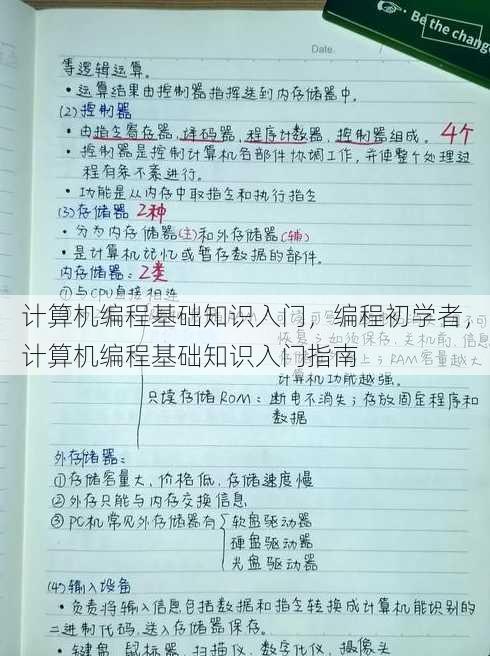 Be the chang
Date.
等逻辑运算。
• 运算结果由控制器指挥送到内存储器中。
(2)控制器
• 由指令寄存器,译码器,程序计数器,控制器组成。4个
• 控制器是控制计算机各部件协调工作,并使整个处理过
程有条不紊进行。
• 功能是从内存中取指令和执行指令
(3)存储器 2种
• 分为内存储器(主)和外存储器(辅)
• 是计算机记忆或暂存数据的部件。
内存储器:2类
①与CPU直接相连
计算机编程基础知识入门,编程初学者,
计算机编程基础知识入门指南
RAM容量越大
计算机功能越强。
只读存储ROM:断电不消失;存放固定程序和
数据
外存储器:
①存储容量大,价格低,存储速度慢
②外存只能与内存交换信息
③PC机常见外存储器有{软盘驱动器
硬盘驱动器
光盘驱动器
(4)输入设备
• 负责将输入信息包括数据和指令转换成计算机能识别的
二进制代码,送入存储器保存。
• 键盘、鼠标器、扫描仪、数字化仪、摄像头